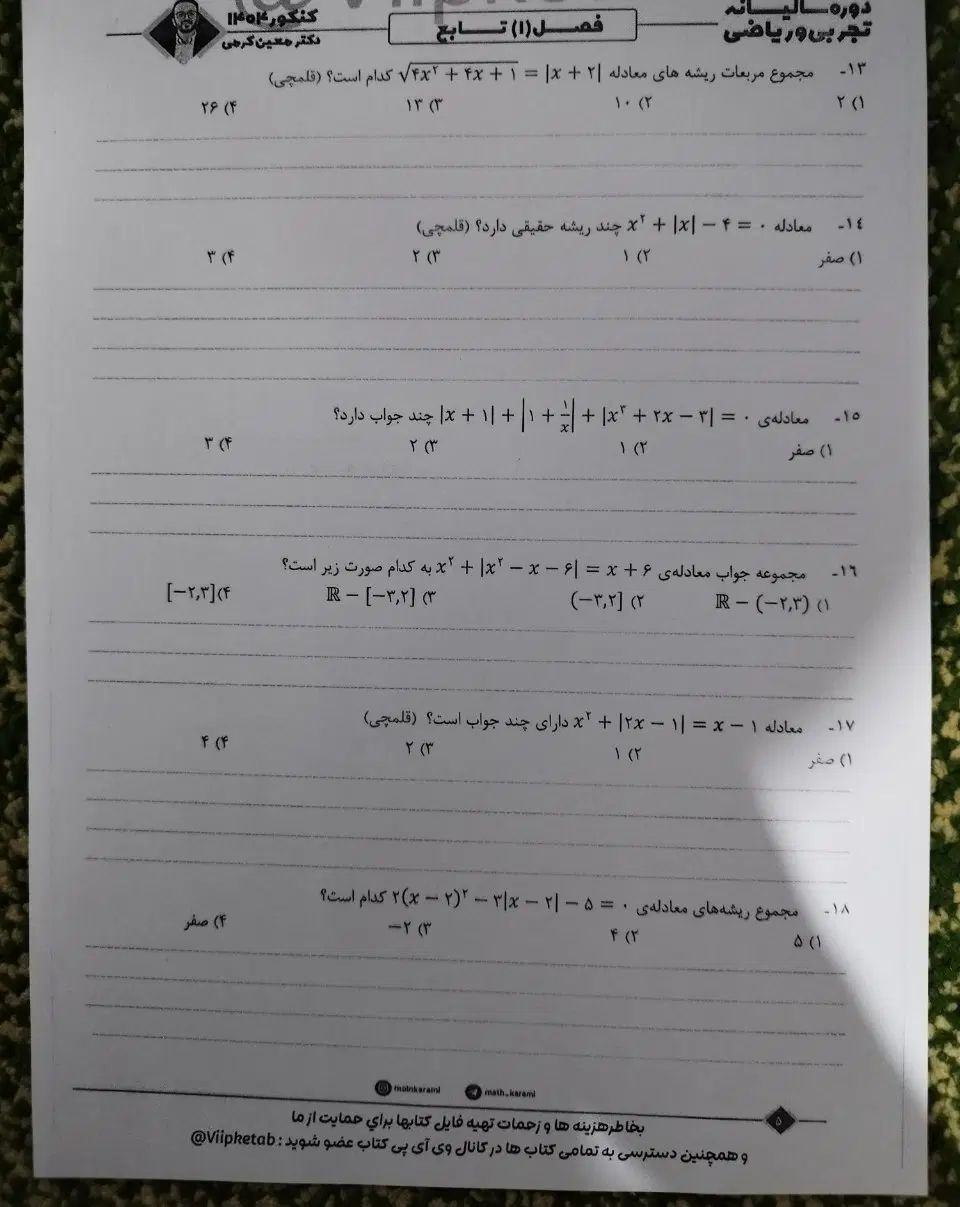 @Viipket
دوره سالیانه
تجربی و ریاضی
فصل (۱) تابع
کنکور ۱۴۰۴
دکتر معین کرمی
۱۳- مجموع مربعات ریشه های معادله |x + ۲| = √(۴x² + ۴x + ۱) کدام است؟ (قلمچی)
۱) ۲ ۲) ۱۰ ۳) ۱۳ ۴) ۲۶
۱۴- معادله x² + |x| − ۴ = ۰ چند ریشه حقیقی دارد؟ (قلمچی)
۱) صفر ۲) ۱ ۳) ۲ ۴) ۳
۱۵- معادله‌ی |x + ۱| + |۱ + ۱/x| + |x² + ۲x − ۳| = ۰ چند جواب دارد؟
۱) صفر ۲) ۱ ۳) ۲ ۴) ۳
۱۶- مجموعه جواب معادله‌ی x² + |x² − x − ۶| = x + ۶ به کدام صورت زیر است؟
۱) ℝ − (−۲,۳) ۲) (−۳,۲] ۳) ℝ − [−۳,۲] ۴) [−۲,۳]
۱۷- معادله x² + |۲x − ۱| = x − ۱ دارای چند جواب است؟ (قلمچی)
۱) صفر ۲) ۱ ۳) ۲ ۴) ۴
۱۸- مجموع ریشه‌های معادله‌ی ۲(x − ۲)² − ۳|x − ۲| − ۵ = ۰ کدام است؟
۱) ۵ ۲) ۴ ۳) −۲ ۴) صفر
moinkarami math_karami
۵
بخاطر هزینه ها و زحمات تهیه فایل کتابها برای حمایت از ما
و همچنین دسترسی به تمامی کتاب ها در کانال وی آی پی کتاب عضو شوید : @Viipketab